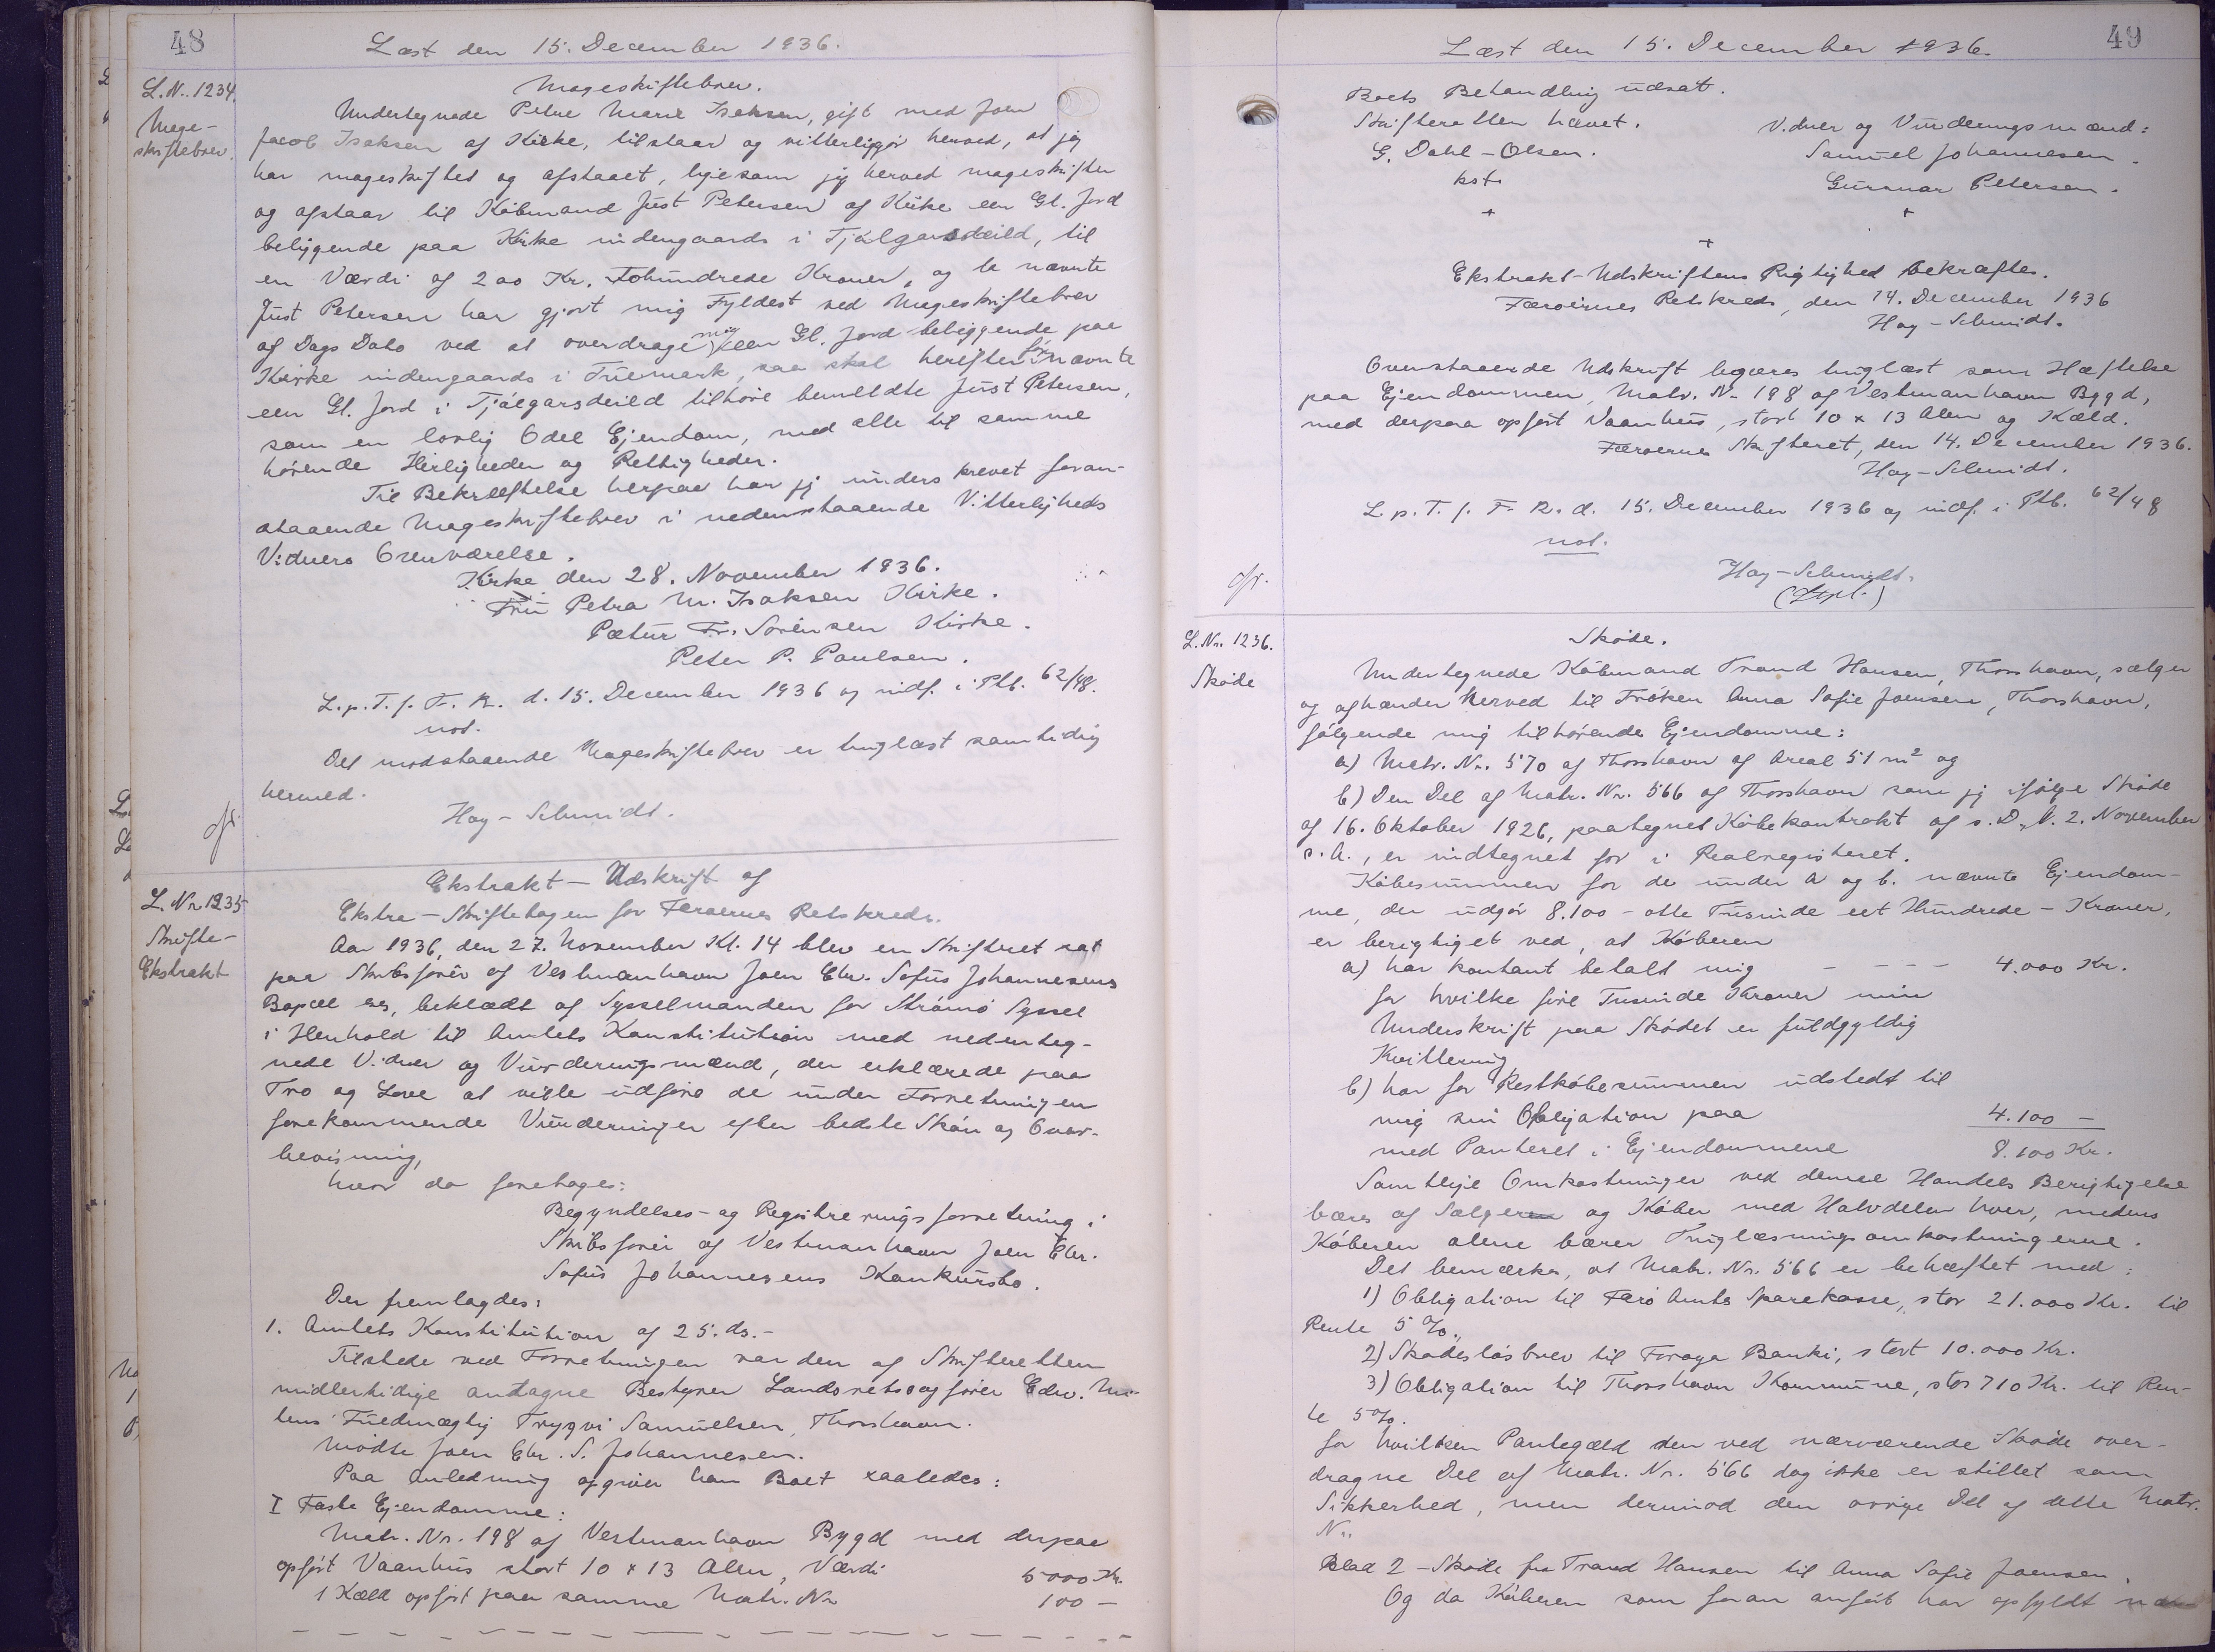 48
Læst den 15. December 1936.
L.Nr. 1234.
Mage-
skiftebrev.
Mageskiftebrev.
Undertegnede Petra Marie Isaksen, gift med Joen
Jacob Isaksen af Kirke, tilstaar og vitterliggør herved, at jeg
har mageskiftet og afstaaet, ligesom jeg herved mageskifter
og afstaar til Købmand Just Petersen af Kirke een Gl. Jord
beliggende paa Kirke indengaards i Tjálgarsdeild, til
en Værdi af 200 Kr. Tohundrede Kroner, og da nævnte
Just Petersen har gjort mig Fyldest ved Mageskiftebrev
af Dags Dato ved at overdrage mig een Gl. Jord beliggende paa
Kirke indengaards i Tuemark, saa skal herefter fornævnte
een Gl. Jord i Tjálgarsdeild tilhøre bemeldte Just Petersen,
som en lovlig Odel Ejendom, med alle til samme
hørende Herligheder og Rettigheder.
Til Bekræftelse herpaa har jeg underskrevet foran-
staaende Mageskiftebrev i nedenstaaende Vitterligheds
Vidners Overværelse.
Kirke den 28. November 1936.
Fru Petra M. Isaksen Kirke.
Pætur Fr. Sørensen Kirke.
Peter P. Poulsen.
L.p.T.f.F.R. d. 15. December 1936 og indf. i Ptb. 62/48.
not.
Det modstaaende Mageskiftebrev er tinglæst samtidig
hermed.
Hoy-Schmidt.
cfr.
L.Nr. 1235
Skifte-
Ekstrakt
Ekstrakt - Udskrift af
Ekstra-Skiftebogen for Færøernes Retskreds.
Aar 1936, den 27. November Kl. 14 blev en Skifteret sat
paa Skibsfører af Vestmanhavn Joen Chr. Sofus Johannesens
Bopæl, beklædt af Sysselmanden for Strømø Syssel
i Henhold til Amtets Konstitution med nedenteg-
nede Vidner og Vurderingsmænd, der erklærede paa
Tro og Love at ville udføre de under Forretningen
forekommende Vurderinger efter bedste Skøn og Over-
bevisning,
hvor da foretages:
Begyndelses- og Registreringsforretning i
Skibsfører af Vestmanhavn Joen Chr.
Sofus Johannesens Konkursbo.
Der fremlagdes:
1. Amtets Konstitution af 25. ds.-
Tilstede ved Forretningen var den af Skifteretten
midlertidige antagne Bestyrer Landsretssagfører Edw. Mi-
tens Fuldmægtig Trygvi Samuelsen, Thorshavn.
Mødte Joen Chr. S. Johannesen.
Paa Anledning opgiver han Boet saaledes:
I Faste Ejendomme:
Matr. Nr. 198 af Vestmanhavn Bygd med derpaa
opført Vaanhus stort 10 x 13 Alen, Værdi 5000 Kr.
1 Kæld opført paa samme Matr. Nr. 100 —
49
Læst den 15. December 1936.
Boets Behandling udsat.
Skifteretten hævet.
Vidner og Vurderingsmænd:
G. Dahl-Olsen.
Samuel Johannesen.
kst.
Gunnar Petersen.
Ekstrakt-Udskriftens Rigtighed bekræftes.
Færøernes Retskreds, den 14. December 1936
Hoy-Schmidt.
Ovenstaaende Udskrift begæres tinglæst som Hæftelse
paa Ejendommen, Matr. Nr. 198 af Vestmanhavn Bygd,
med derpaa opført Vaanhus, stort 10 x 13 Alen og Kæld.
Færøernes Skifteret, den 14. December 1936.
Hoy-Schmidt.
L.p.T.f.F.R.d. 15. December 1936 og indf. i Ptb. 62/48
not.
Hoy-Schmidt.
cfr.
L.Nr. 1236.
Skøde
Skøde.
Undertegnede Købmand Trand Hansen, Thorshavn, sælger
og afhænder herved til Frøken Anna Sofie Joensen, Thorshavn,
følgende mig tilhørende Ejendomme:
a) Matr. Nr. 570 af Thorshavn af Areal 51 m² og
b) Den Del af Matr. Nr. 566 af Thorshavn som jeg ifølge Skøde
af 16. Oktober 1926, paategnet Købekontrakt af s. D., l. 2. November
s.A., er indtegnet for i Realregisteret.
Købesummen for de under a og b. nævnte Ejendom-
me, der udgør 8.100 - otte Tusinde eet Hundrede - Kroner,
er berigtiget ved, at Køberen
a) har kontant betalt mig - - - - 4.000 Kr.
for hvilke fire Tusinde Kroner min
Underskrift paa Skødet er fuldgyldig
Kvittering
b) har for Restkøbesummen udstedt til
mig sin Obligation paa 4.100 —
med Panteret i Ejendommene 8.100 Kr.
Samtlige Omkostninger ved denne Handels Berigtigelse
bæres af Sælger og Køber med Halvdelen hver, medens
Køberen alene bærer Tinglæsningsomkostningerne.
Det bemærkes, at Matr. Nr. 566 er behæftet med:
1) Obligation til Færø Amts Sparekasse, stor 21.000 Kr. til
Rente 5 %,
2) Skadesløsbrev til Føroya Banki, stort 10.000 Kr.
3) Obligation til Thorshavn Kommune, stor 710 Kr. til Ren-
te 5%.
for hvilken Pantegæld den ved nærværende Skøde over-
dragne Del af Matr. Nr. 566 dog ikke er stillet som
Sikkerhed, men derimod den øvrige Del af dette Matr.
Nr.
Blad 2 - Skøde fra Trand Hansen til Anna Sofie Joensen.
Og da Køberen som foran anført har opfyldt